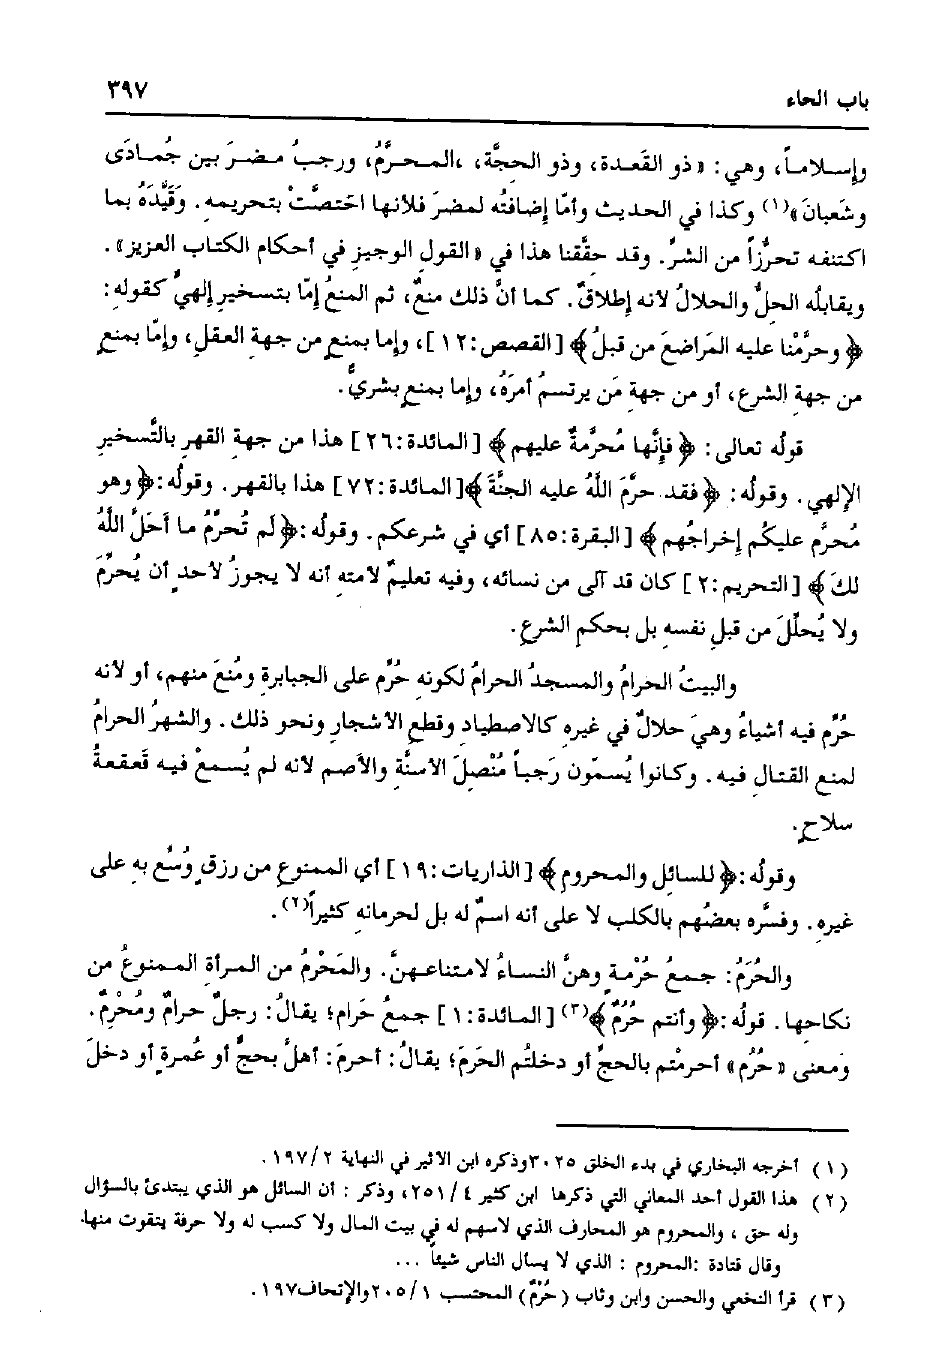 باب الحاء
٣٩٧
وإسلاماً، وهي: «ذو القَعدة، وذو الحِجَّة، ،المحرَّمُ، ورجبُ مضرَ بين جُمادَى
وشَعبانَ»(١) وكذا في الحديث وأمّا إضافتُه لمضرَ فلأنها اختصَّتْ بتحريمهِ. وقَيَّدَهُ بما
اكتنفه تحرُّزاً من الشرِّ. وقد حقَّقنا هذا في «القول الوجيزِ في أحكام الكتاب العزيز».
ويقابلُه الحلُّ والحلالُ لأنه إطلاقٌ. كما أنَّ ذلك منعٌ، ثم المنعُ إمّا بتسخيرٍ إلهيٍّ كقولهِ:
﴿وحرَّمْنا عليه المَراضعَ من قبلُ﴾ [القصص:١٢]، وإما بمنعٍ من جهةِ العقلِ، وإمّا بمنعٍ
من جهةِ الشرعِ، أو من جهةِ مَن يرتسمُ أمرَهُ، وإما بمنعٍ بشريٍّ.
قولُه تعالى: ﴿فإنَّها مُحرَّمةٌ عليهم﴾ [المائدة:٢٦] هذا من جهةِ القهرِ بالتَّسخيرِ
الإلهي. وقولُه: ﴿فقد حرَّمَ اللَّهُ عليه الجنَّةَ﴾[المائدة:٧٢] هذا بالقهر. وقولُه:﴿وهو
مُحرَّم عليكُم إخراجُهم﴾ [البقرة:٨٥] أي في شرعكم. وقولُه:﴿لَم تُحرِّمُ ما أحَلَّ اللَّهُ
لكَ﴾ [التحريم:٢] كان قد آلى من نسائه، وفيه تعليمٌ لأمتهِ أنه لا يجوزُ لأحدٍ أن يُحرِّمَ
ولا يُحلِّلَ من قبلِ نفسهِ بل بحكمِ الشرعِ.
والبيتُ الحرامُ والمسجدُ الحرامُ لكونهِ حُرِّم على الجبابرةِ ومُنعَ منهم، أو لأنه
حُرِّم فيه أشياءُ وهيَ حلالٌ في غيرهِ كالاصطيادِ وقطعِ الأشجارِ ونحو ذلك. والشهرُ الحرامُ
لمنع القتالِ فيه. وكانوا يُسمّون رَجباً مُنْصِلَ الأسنَّةِ والأصم لأنه لم يُسمعْ فيه قَعقعةُ
سلاحٍ.
وقولُه:﴿للسائل والمحرومِ﴾ [الذاريات:١٩] أي الممنوعِ من رزقٍ وُسِّع بهِ على
غيرهِ. وفسَّره بعضُهم بالكلب لا على أنه اسمٌ له بل لحرمانهِ كثيراً(٢).
والحُرَمُ: جمعُ حُرْمةٍ وهنَّ النساءُ لامتناعهنَّ. والمَحْرمُ من المرأةِ الممنوعُ من
نكاحِها. قولُه:﴿وأنتم حُرُمٌ﴾(٣) [المائدة:١] جمعُ حَرام؛ يقالُ: رجلٌ حرامٌ ومُحْرِمٌ.
ومعنى «حُرُم» أحرمْتم بالحجِّ أو دخلتُم الحَرَمَ؛ يقالُ: أحرمَ: أهلَّ بحجٍّ أو عُمرةٍ أو دخلَ
(١) أخرجه البخاري في بدء الخلق ٣٠٢٥وذكره ابن الأثير في النهاية ١٩٧/٢.
(٢) هذا القول أحد المعاني التي ذكرها ابن كثير ٢٥١/٤، وذكر : أن السائل هو الذي يبتدئ بالسؤال
وله حق ، والمحروم هو المحارف الذي لاسهم له في بيت المال ولا كسب له ولا حرفة يتقوت منها.
وقال قتادة :المحروم : الذي لا يسأل الناس شيئاً ...
(٣) قرأ النخعي والحسن وابن وثاب (حُرْمٌ) المحتسب ٢٠٥/١والإتحاف١٩٧.